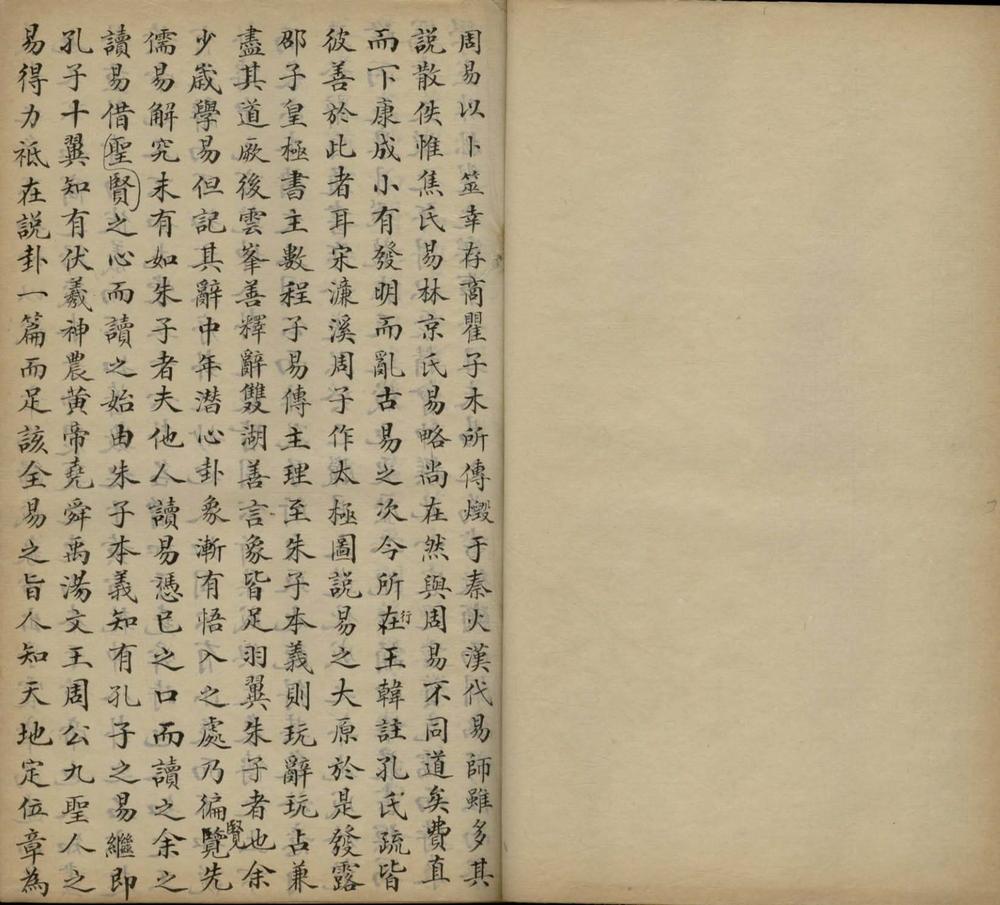 周易以卜筮幸存商瞿子木所傳燬于秦火漢代易師雖多其
說散佚惟焦氏易林京氏易略尚在然與周易不同道矣費直
而下康成小有發明而亂古易之次今所在行王韓註孔氏疏皆
彼善於此者耳宋濂溪周子作太極圖說易之大原於是發露
邵子皇極書主數程子易傳主理至朱子本義則玩辭玩占兼
盡其道厥後雲峯善釋辭雙湖善言象皆足羽翼朱子者也余
少歲學易但記其辭中年潛心卦象漸有悟入之處乃徧覽覽先
儒易解究未有如朱子者夫他人讀易憑己之口而讀之余之
讀易借聖賢之心而讀之始由朱子本義知有孔子之易繼即
孔子十翼知有伏羲神農黃帝堯舜禹湯文王周公九聖人之
易得力祇在說卦一篇而足該全易之旨人知天地定位章為